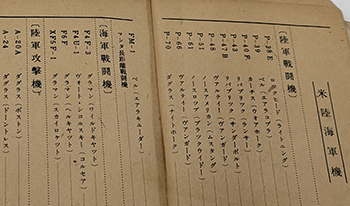 米陸海軍機
〔陸軍戰鬪機〕
P-38E ロッキード(ライトニング)
P-39 ベル(エアラコブラ)
P-40F カーチス(ウオアホーク)
P-43 リパブリック(ランサー)
P-47B リパブリック(サンダーボルト)
P-48
P-51 ノースアメリカン(ムスタング)
P-61 ノースロップ
P-66 ヴァルティ(ヴァンガード)
P-70 ダグラス(ナイトホーク)
FM-1 ベル(エアラキューダー)
マンタ長距離戰鬪機
〔海軍戰鬪機〕
F4F-3 グラマン(ワイルドキャット)
F4U-1 ヴォート・シコルスキー(コルセア)
F6F グラマン(ヘルキャット)
XF5F-1 グラマン(スカイロケット)
〔陸軍攻撃機〕
A-20A ダグラス(ボストン)
A-24 ダグラス(ドーントレス)